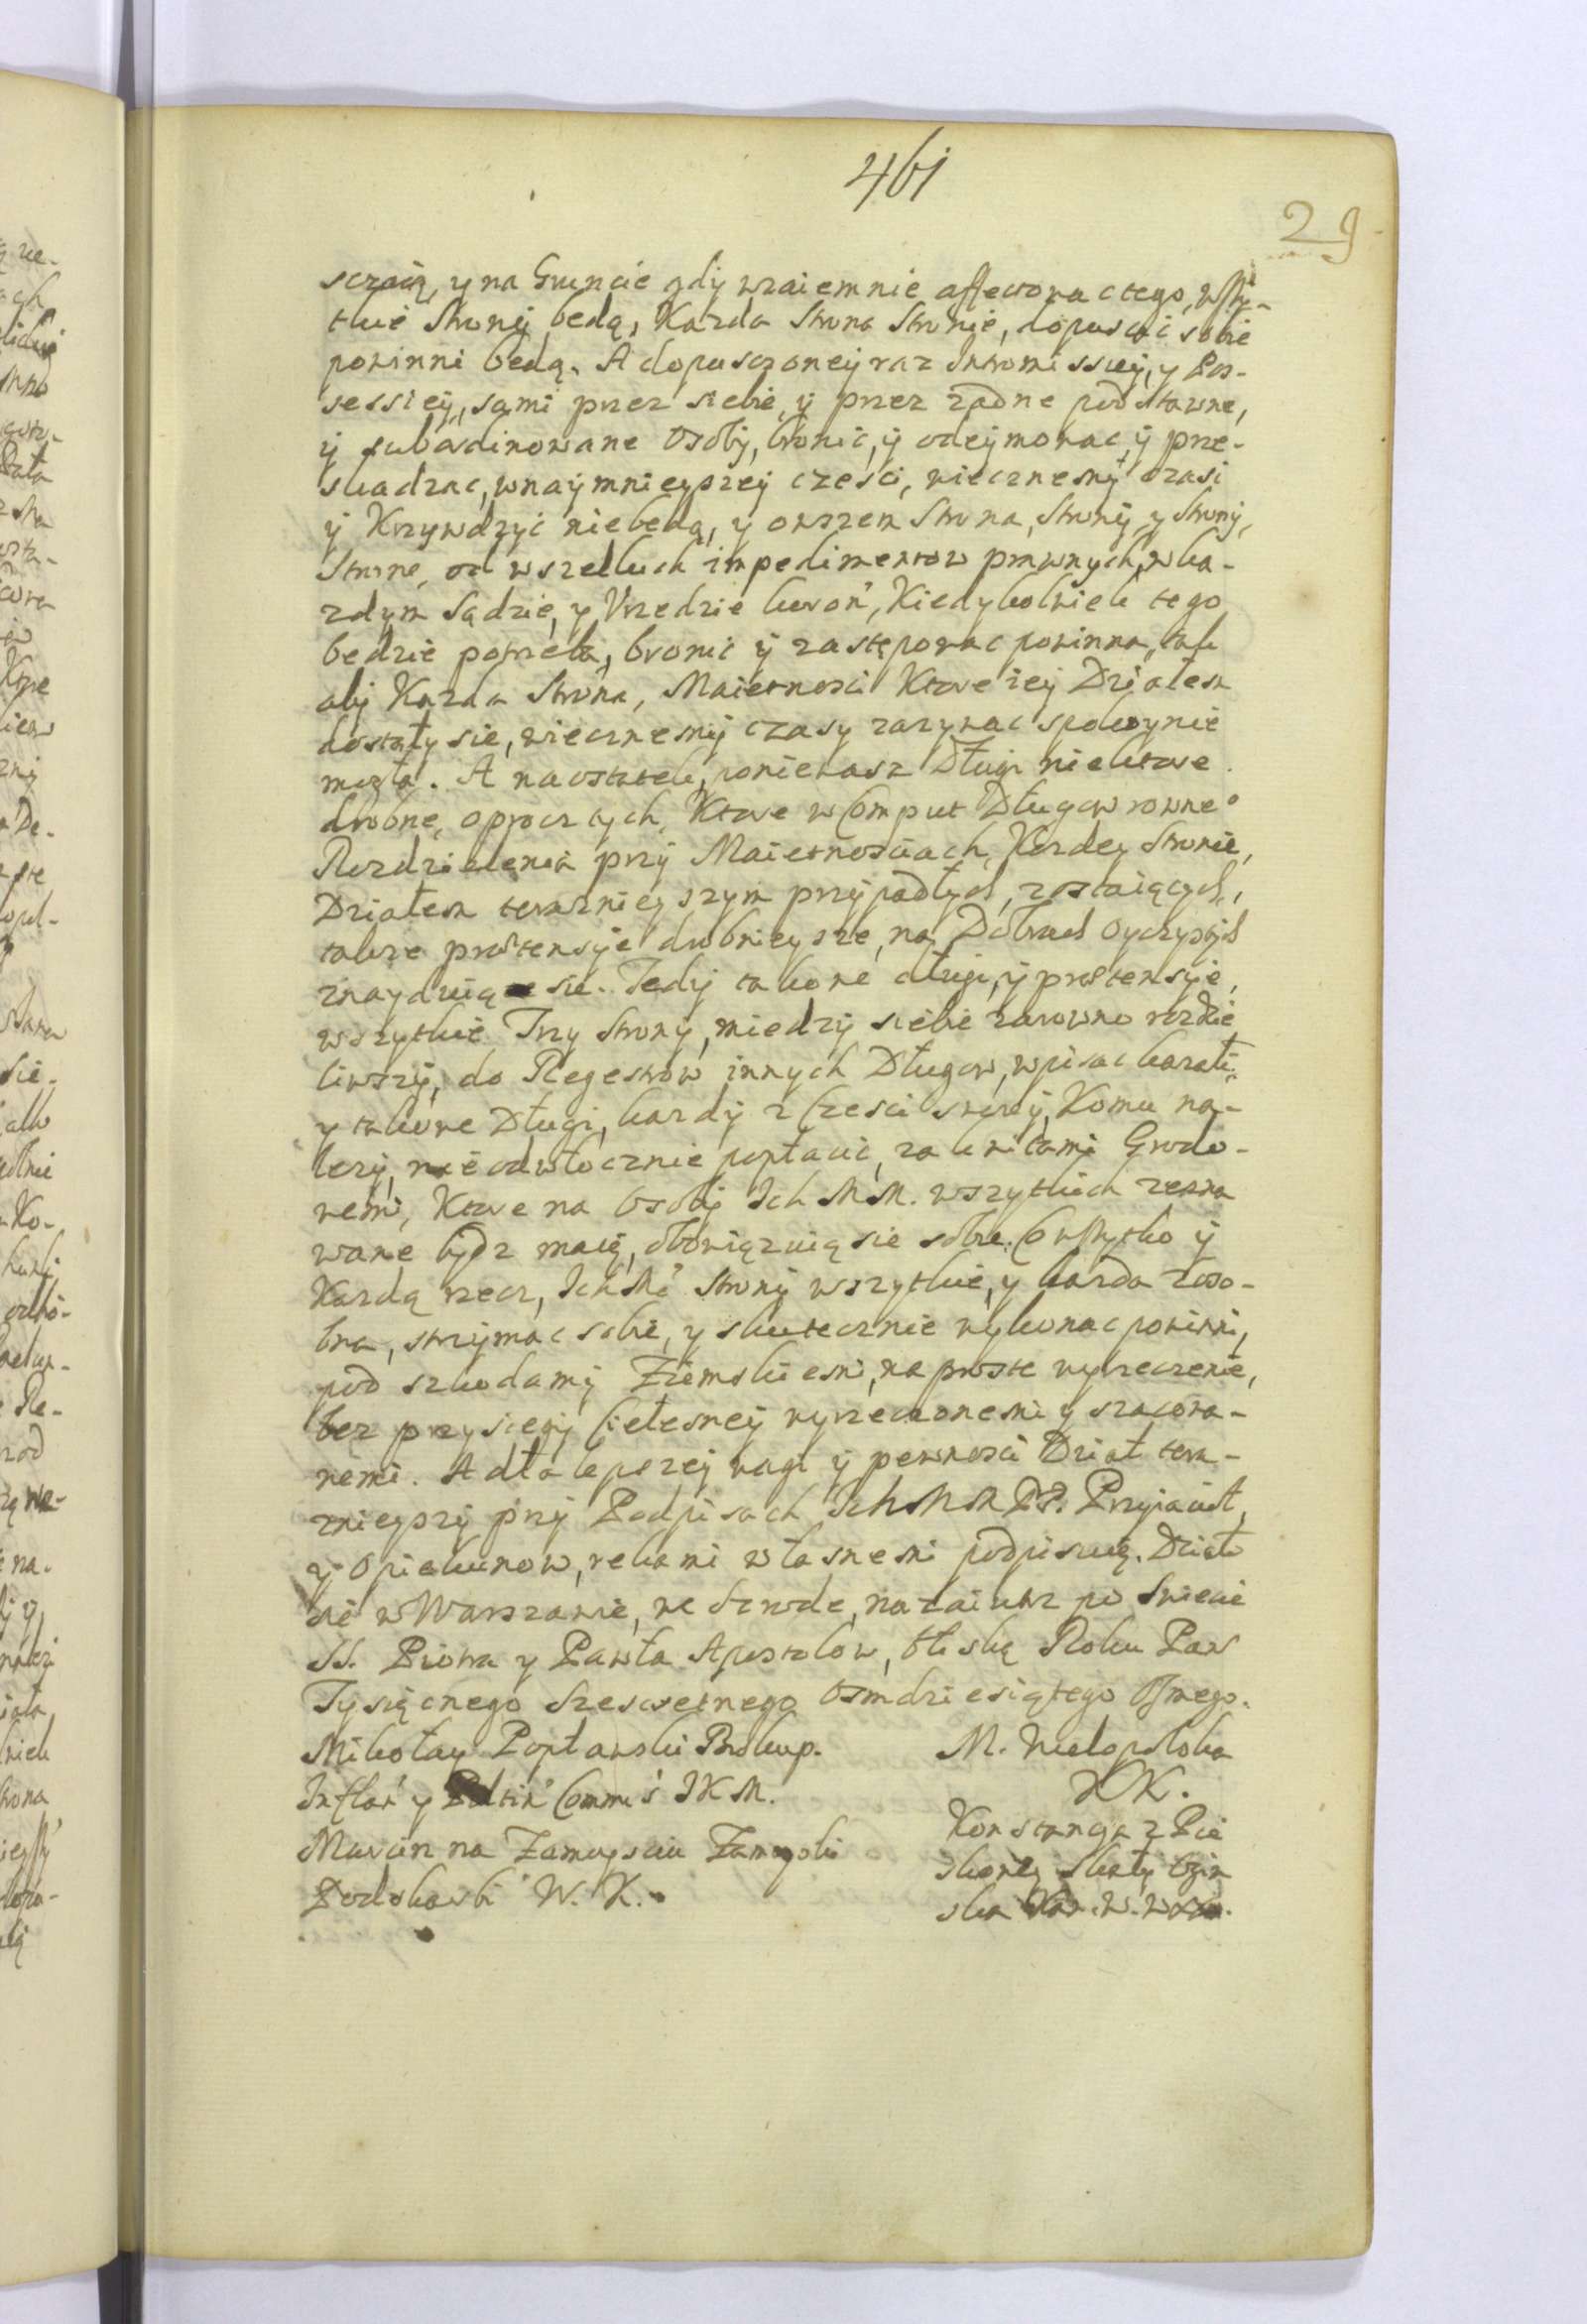 461
29
sczaią, y na Gruncie gdy wzaiemnie affectowac tego, wszÿ-
tkie Stronÿ będą, Kazda Strona Stronie, dopuscic sobie
powinni będą. A dopusczoneÿ raz Intromissieÿ, y Pos-
sessieÿ, sami przez siebie, ÿ przez zadne podstawne,
ÿ subordinowane Osobÿ, bronic, ÿ odeÿmowac, ÿ prze-
skadzac, w naÿmnieÿszeÿ czesci, wiecznemÿ czasÿ
ÿ Krzywdzÿć niebędą, y owszem Strona, Stronÿ, y Stronÿ,
Stronę, od wszelkich impedimentow prawnych, w ka-
zdym Sądzie, y Vrzedzie koron, Kiedykolwiek tego
bedzie potrzeba, bronic ÿ zastępowac powinna, tak
abÿ Kazda Strona, Maietnosci Ktore ieÿ Działem
dostałÿ sie, wiecznemÿ czasy zazywac spokoynie
mogła. A na ostatek, poniewasz Długi niektore
drobne, oprocz tych, Ktore w Comput Długow rowne°
Rozdzielenia przÿ Maietnosciach, Kozdeÿ Stronie,
Działem terazniejszym przÿpadłych, zostaiących,
takze praetensÿe drobnieysze, na Dobrach Oyczystÿch
znayduią sie. Tedÿ takowe długi, ÿ praetensÿe,
wszytkie Trzy Stronÿ, miedzÿ siebie zarowno rozdzie
liwszÿ, do Regestrow innych Długow, wpisac kazali
y takowe Długi, kozdÿ z Czesci swoieÿ, Komu na-
lezÿ, nieodwłocznie popłacić, za kwitami Grodo-
wemi, Ktore na Osobÿ Ich MM. wszytkich zezna
wane bydz maią, obowiązuią sie sobie. Co wszÿtko ÿ
Kazdą rzecz, Ich Mć Stronÿ wszytkie, y kazda zoso-
bna, strzÿmac sobie, y skutecznie wykonac powinni,
pod szkodamÿ Ziemskiemi, na proste wyrzeczenie,
bez przysiegÿ Cielesneÿ wyrzeczonemi y szacowa-
nemi. A dla lepszeÿ wagi ÿ pewnosci Dział tera-
znieÿszÿ przÿ Podpisach Ich MM PP. Przyiacioł,
y Opiekunow, rekami własnemi podpisuią. Działo
sie w Warszawie, we Szrode, nazaiutrz po Swiecie
SS. Piotra y Pawła Apostołow, Roku Pan
Tysiącnego Szescsetnego Osmdziesiątego Osmego.
Mikołay Popławski Biskup.
Inflan y Commis JKM.
Marcin na Zamosciu Zamoyski
Podskarbi W. K.
M. Wielopolska
KK.
Konstancya z Pie
skowey Skałÿ Ogin
ska